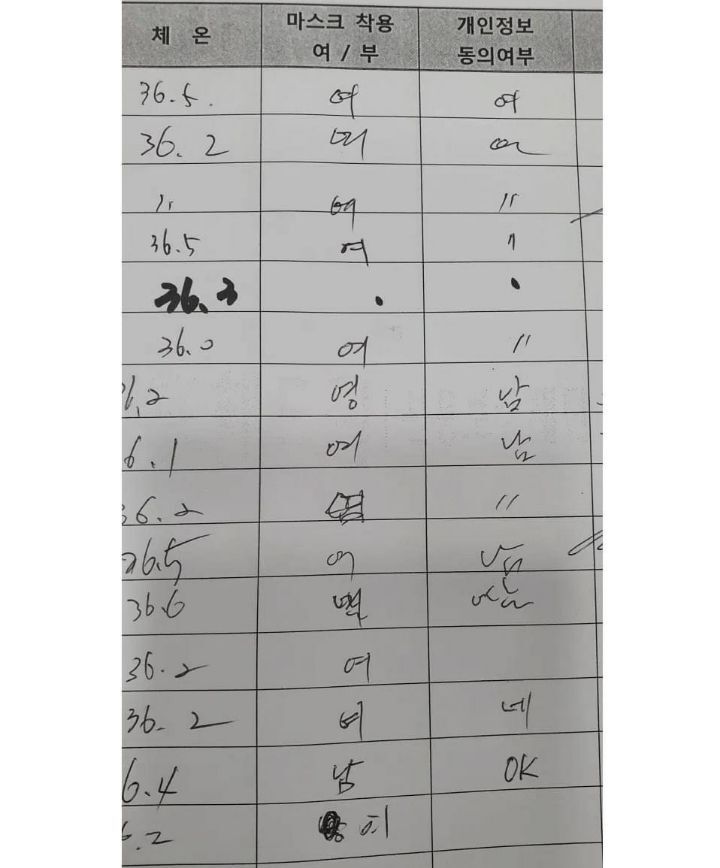 체 온 마스크 착용 개인정보
여 / 부 동의여부
36.5. 여 여
36. 2 여 여
〃 여 〃
36.5 여 〃
36.3 . .
36.0 여 〃
6.2 영 남
6.1 여 남
36.2 〃
36.5 여 남
36.6 남
36.2 여
36. 2 여 네
6.4 남 OK
6.2